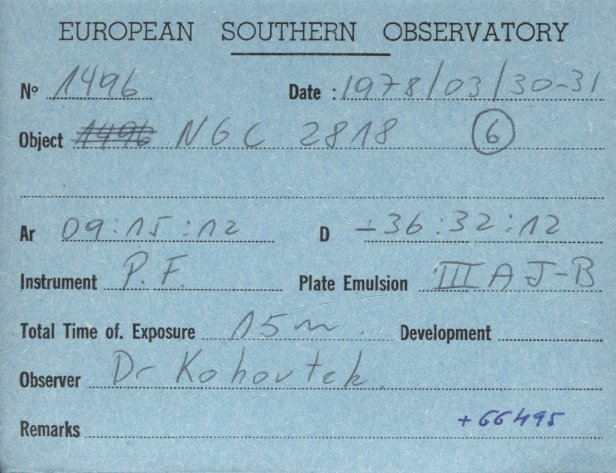 EUROPEAN SOUTHERN OBSERVATORY
Nº 1496 Date : 1978/03/30-31
Object 1496 NGC 2818 6
Ar 09:15:12 D -36:32:12
Instrument P.F. Plate Emulsion III A J-B
Total Time of. Exposure 15m. Development
Observer Dr Kohoutek.
Remarks +66495